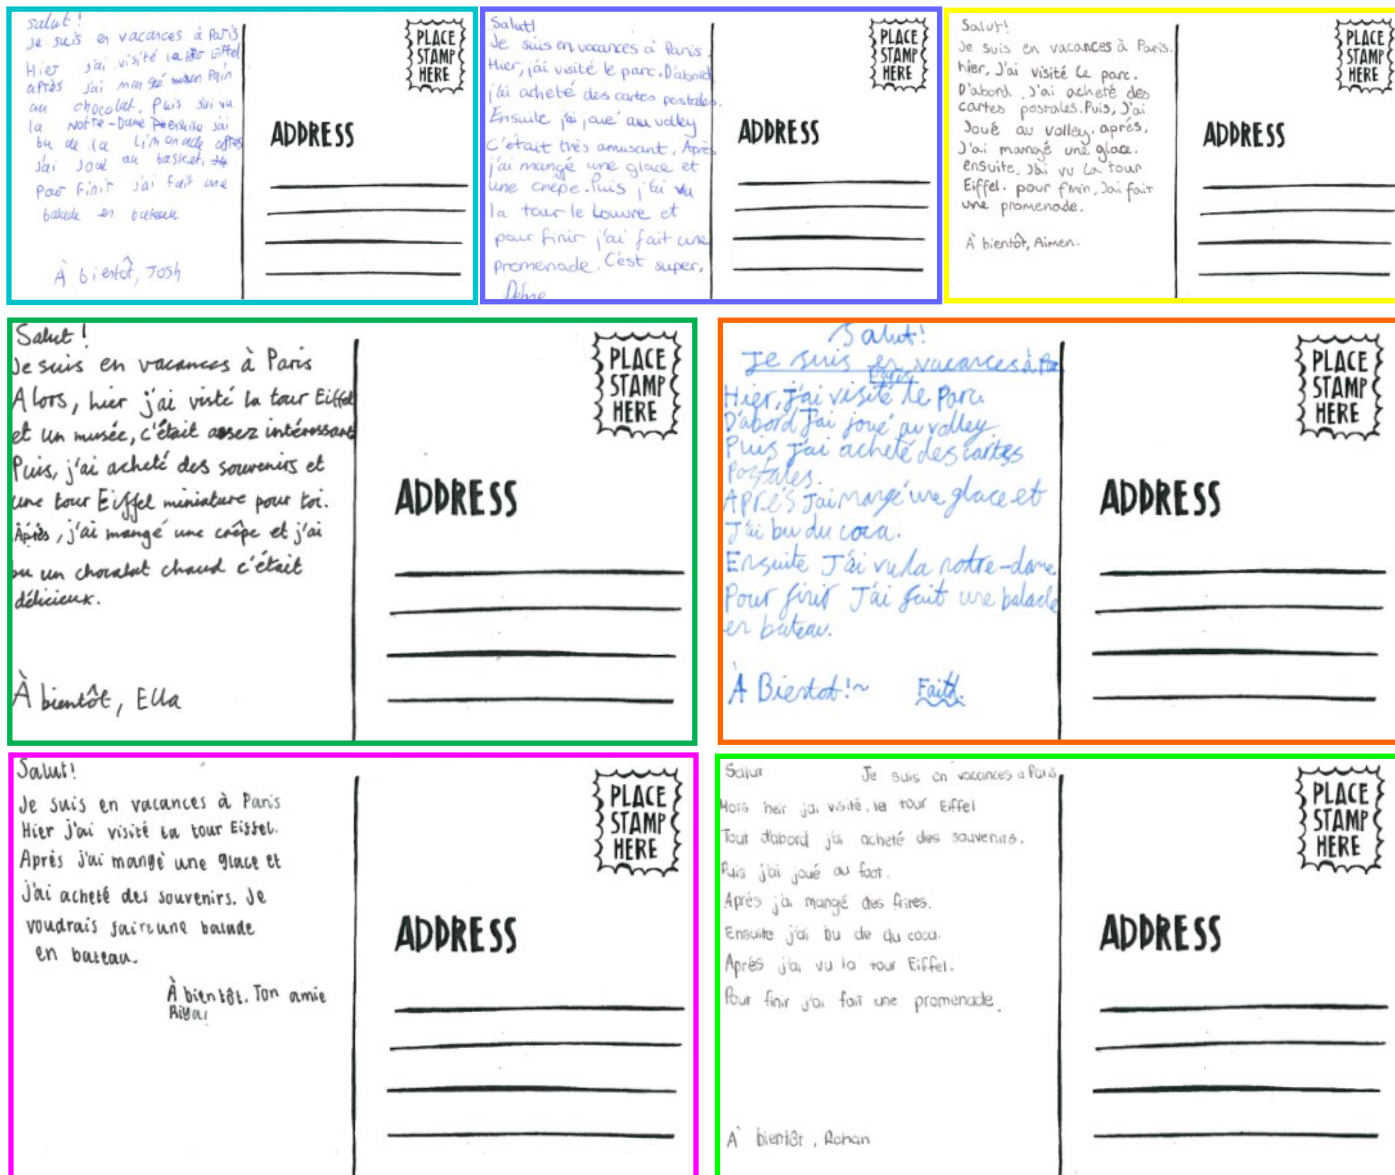 salut !
Je suis en vacances à Paris
Hier j'ai visité la Eiffel
après j'ai mangé un Pain
au chocolat. Puis j'ai vu
la Notre-Dame ensuite j'ai
bu de la Limonade après
j'ai Joué au basket.
Pour Finir j'ai fait une
balade en bateau
À bientôt, Josh
PLACE
STAMP
HERE
ADDRESS
Salut!
Je suis en vacances à Paris.
Hier, j'ai visité le parc. D'abord
j'ai acheté des cartes postales.
Ensuite j'ai joué au volley
c'était très amusant. Après
j'ai mangé une glace et
une crêpe. Puis j'ai vu
la tour le Louvre et
pour finir j'ai fait une
promenade. C'est super.
PLACE
STAMP
HERE
ADDRESS
Salut!
Je suis en vacances à Paris.
hier, J'ai visité Le parc.
D'abord, J'ai acheté des
cartes postales. Puis, J'ai
Joué au volley. après,
J'ai mangé une glace.
ensuite, J'ai vu La tour
Eiffel. pour finin, J'ai fait
une promenade.
À bientôt, Aimen.
PLACE
STAMP
HERE
ADDRESS
Salut !
Je suis en vacances à Paris
Alors, hier j'ai visté la tour Eiffel
et un musée, c'était assez intéressant
Puis, j'ai acheté des souvenirs et
une tour Eiffel miniature pour toi.
Après, j'ai mangé une crêpe et j'ai
bu un chocolat chaud c'était
délicieux.
À bientôt, Ella
PLACE
STAMP
HERE
ADDRESS
Salut!
Je suis en vacances à
Paris
Hier, J'ai visité le Parc
D'abord J'ai joué au volley
Puis J'ai acheté des cartes
Postales.
APRÈS J'ai mangé une glace et
J'ai bu du coca.
Ensuite J'ai vu la notre-dame
Pour finir J'ai fait une balade
en bateau.
À Bientot!~ Faith.
PLACE
STAMP
HERE
ADDRESS
Salut!
Je suis en vacances à Paris
Hier j'ai visité la tour Eiffel.
Après j'ai mangé une glace et
j'ai acheté des souvenirs. Je
voudrais faire une balade
en bateau.
À bientôt. Ton amie
Riya!
PLACE
STAMP
HERE
ADDRESS
Salut Je suis en vacances a Paris
Alors heir j'ai visité, la tour Eiffel
Tout d'abord j'ai acheté des souvenirs.
Puis j'ai joué au foot.
Après j'ai mangé des frires.
Ensuite j'ai bu de du coca.
Après j'ai vu la tour Eiffel.
Pour finir j'ai fait une promenade.
À bientôt, Rohan
PLACE
STAMP
HERE
ADDRESS